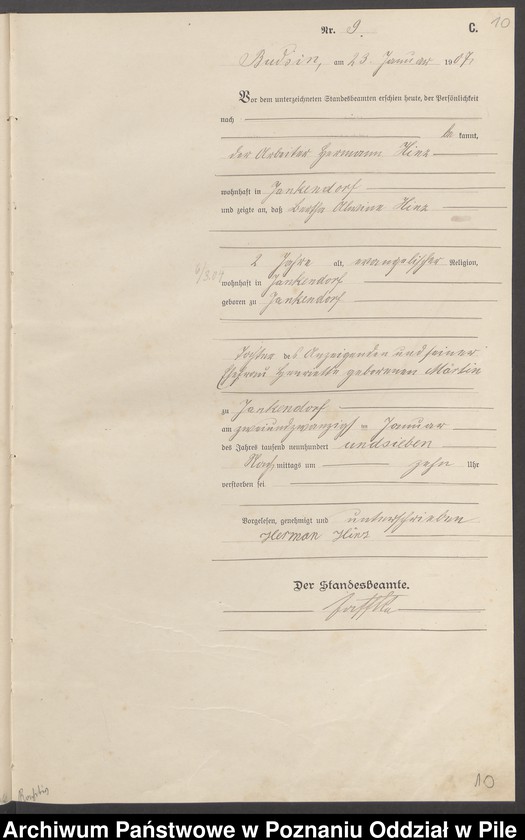 10
Nr. 9. C.
Budsin, am 23 Januar 1907.
Vor dem unterzeichneten Standesbeamten erschien heute, der Persönlichkeit
nach
be kannt,
der Arbeiter Hermann Hinz
wohnhaft in Jankendorf
und zeigte an, daß Bertha Alwine Hinz
2 Jahre alt, evangelischer Religion,
wohnhaft in Jankendorf
geboren zu Jankendorf
Tochter des Anzeigenden und seiner
Ehefrau Henriette geborenen Märtin
zu Jankendorf
am zweiundzwanzigsten Januar
des Jahres tausend neunhundert und sieben
Nach mittags um zehn Uhr
verstorben sei
Vorgelesen, genehmigt und unterschrieben
Herman Hinz
Der Standesbeamte.
10
Archiwum Państwowe w Poznaniu Oddział w Pile